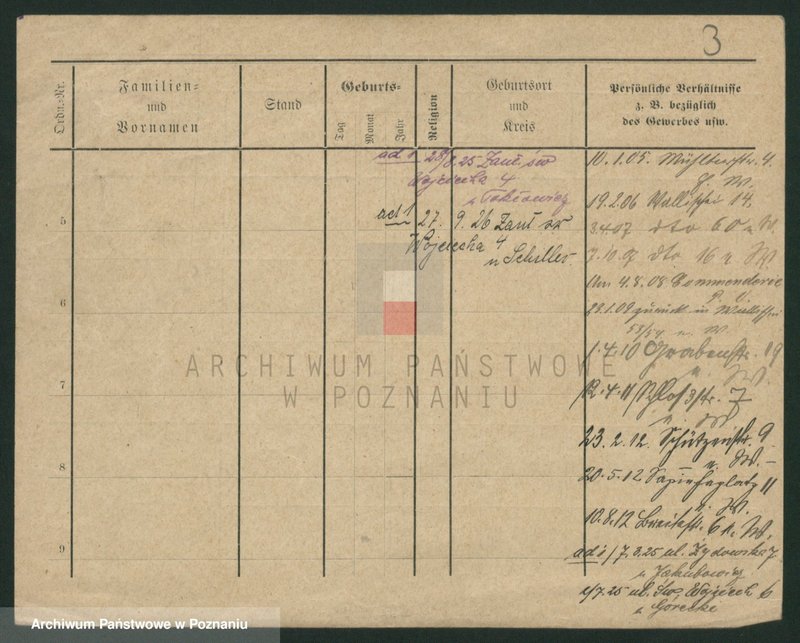 3
Ordn.-Nr.
Familien-
und
Vornamen
Stand
Geburts-
Tag
Monat
Jahr
Religion
Geburtsort
und
Kreis
Persönliche Verhältnisse
z. B. bezüglich
des Gewerbes usw.
ad 1 28/8.25 Zauł. św
Wojciecha 4
ad 1 27. 9. 26 Zauł św
Wojciecha 4
u Schiller
5
6
7
8
9
10.1.05. Mühlenstr. 4.
19.2.06 Wallischei 14.
3.4.07 dto 60 u W.
7.10.07 dto 16 u W.
4.8.08 Commenderie
29.1.09 zurück in Wallischei
u. W.
1.4.10 Grabenstr. 19
u. W.
12.4.11 Schloßstr. 7
u. W.
23.2.12. Schützenstr. 9
u. W.
20.5.12 Sapiehaplatz 11
u. W.
10.8.12 Breitestr. 6 u. W.
ad 1/7.3.25 ul. Żydowska 7.
u Jakubowicz
1/7.25 ul. Św. Wojciech 6
u Goreckie
ARCHIWUM PAŃSTWOWE
W POZNANIU
Archiwum Państwowe w Poznaniu